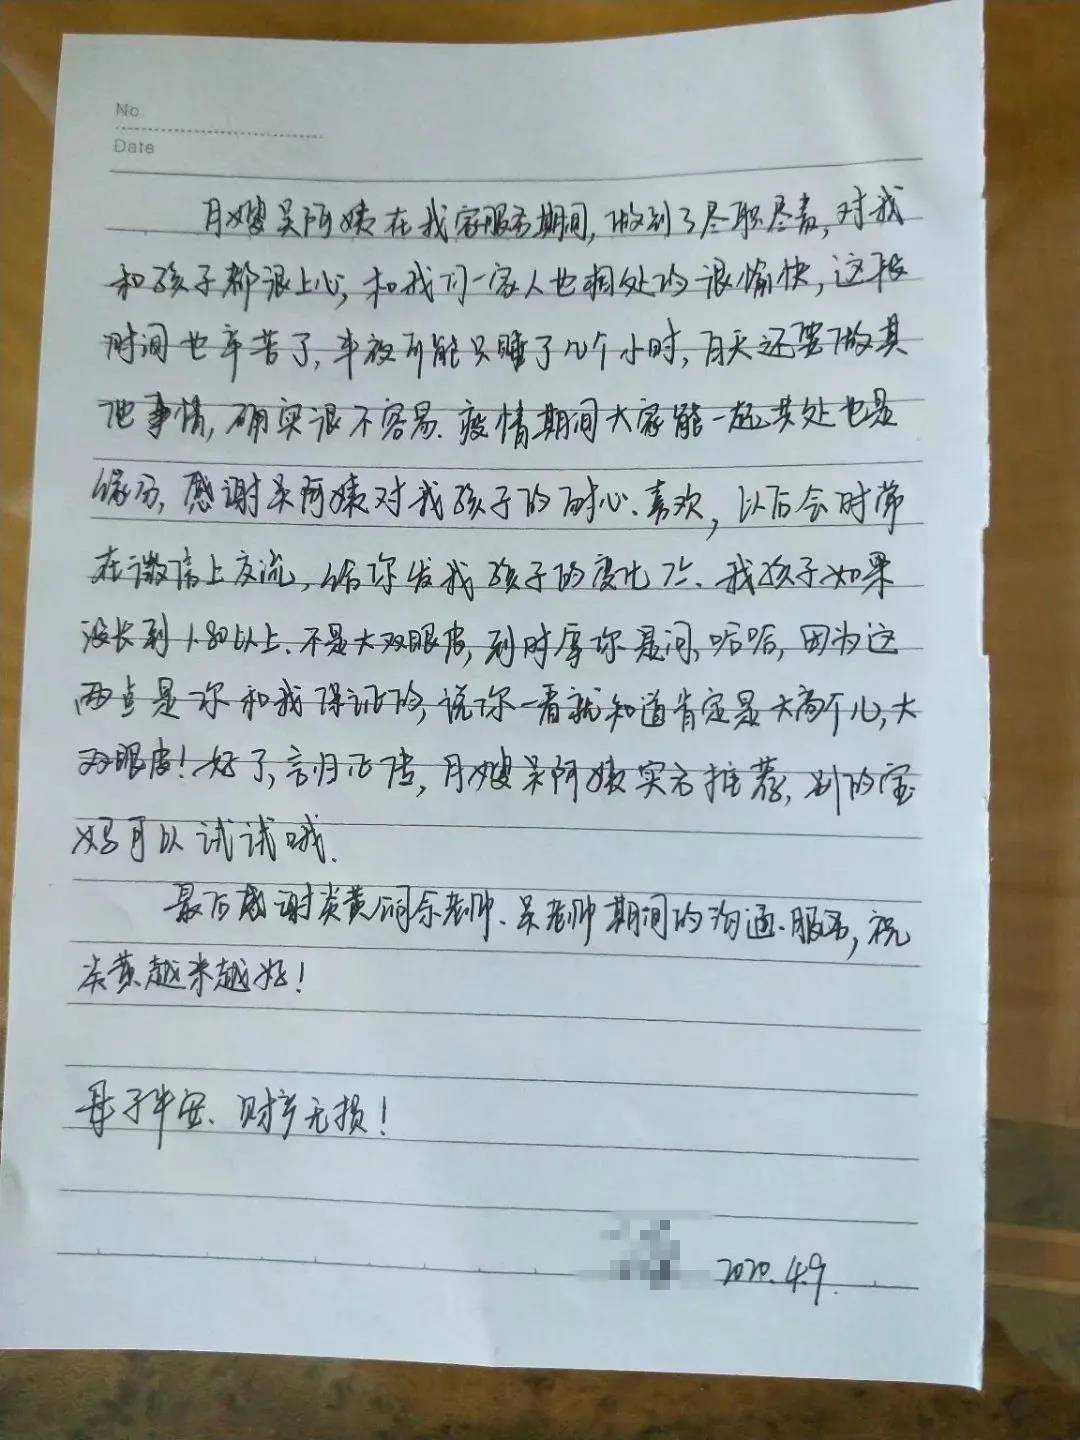 No.
Date
月嫂吴阿姨在我家服务期间,做到了尽职尽责,对我
和孩子都很上心,和我们一家人也相处的很愉快,这段
时间也辛苦了,半夜可能只睡了几个小时,白天还要做其
他事情,确实很不容易.疫情期间大家能一起共处也是
缘分,感谢吴阿姨对我孩子的耐心、喜欢,以后会时常
在微信上交流,给你发我孩子的变化
我孩子如果
没长到1.80以上、不是大双眼皮,到时拿你是问,哈哈,因为这
两点是你和我保证的,说你一看就知道肯定是大高个儿,大
双眼皮!好了,言归正传,月嫂吴阿姨实力推荐,别的宝
妈可以试试哦.
最后感谢炎黄的余老师、吴老师期间的沟通、服务,祝
炎黄越来越好!
母子平安、财产无损!
2020.4.9.